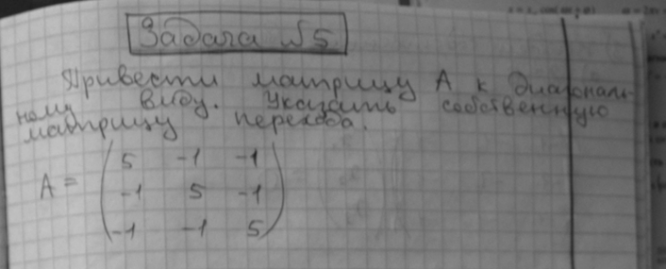 Задача №5
Привести матрицу A к диагональ-
ному виду. Указать собственную
матрицу перехода.
5 -1 -1
A = -1 5 -1
-1 -1 5